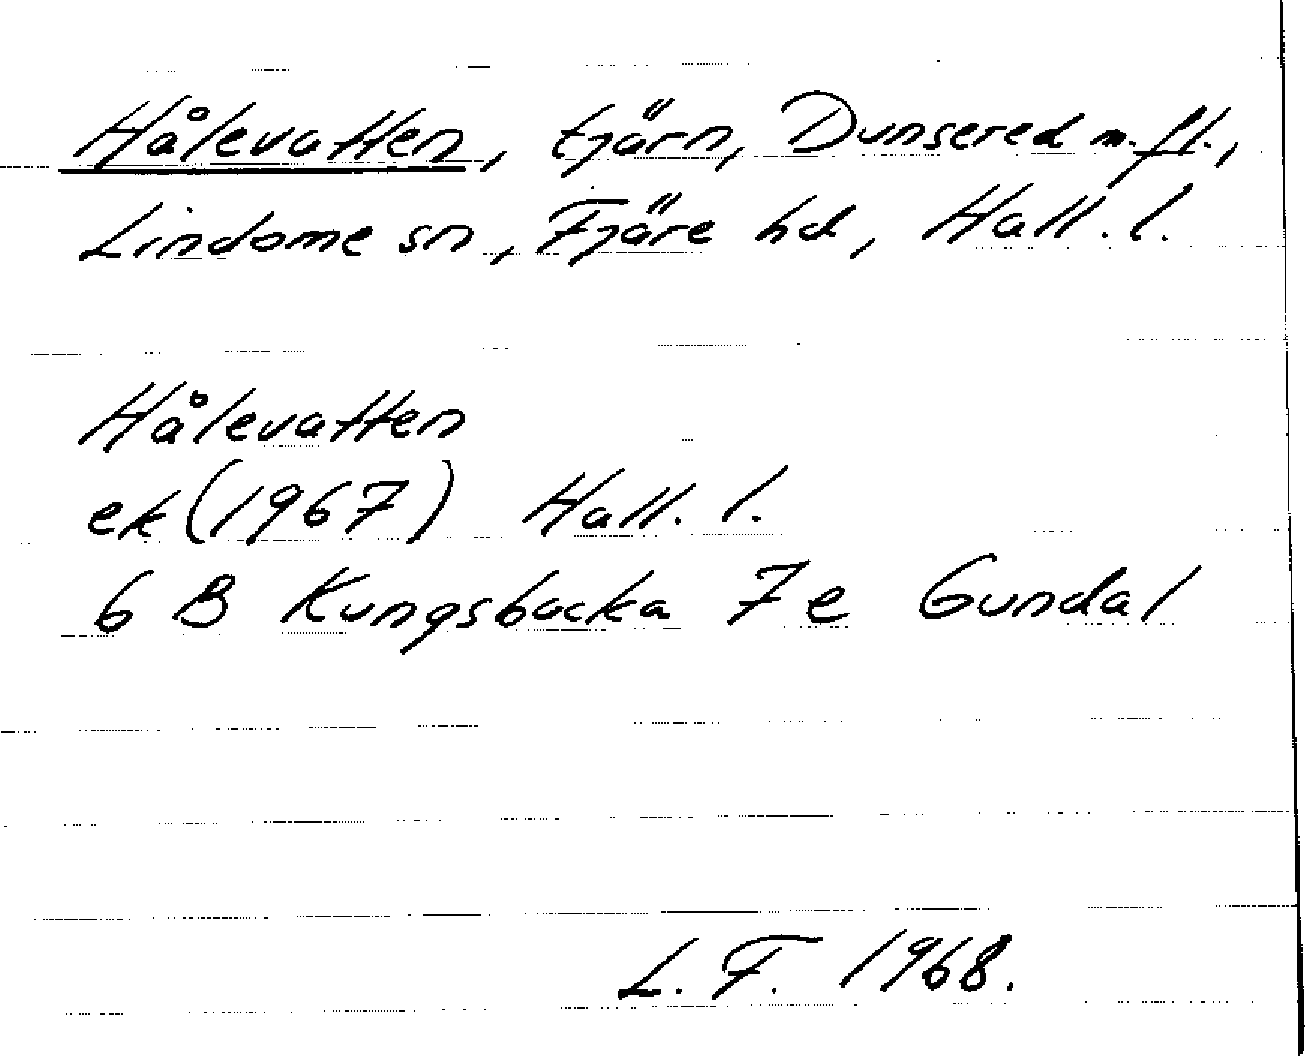 Hålevatten, tjärn, Dunsered m.fl.,
Lindome sn, Fjäre hd, Hall. l.
Hålevatten
ek (1967) Hall. l.
6 B Kungsbacka 7 e Gundal
L. F. 1968.